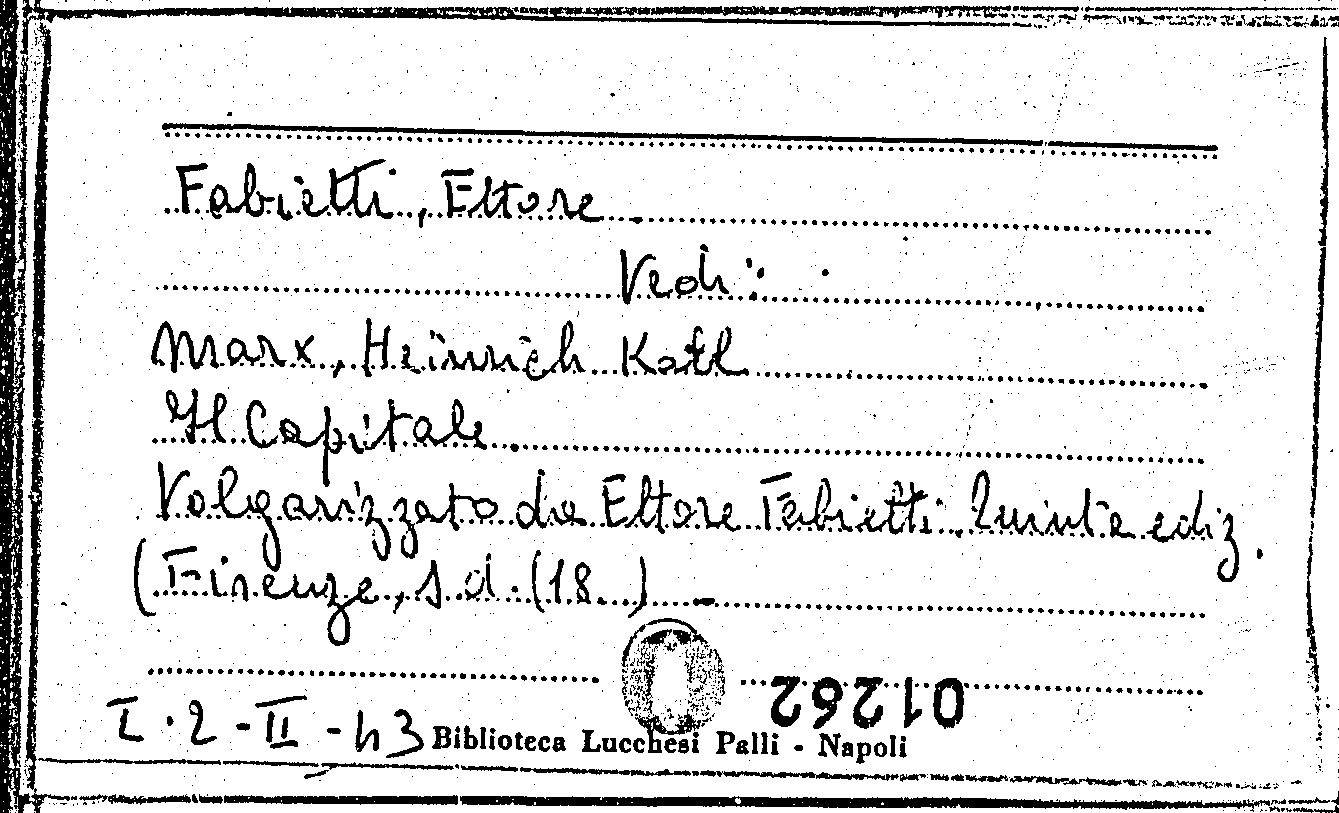 Fabietti, Ettore
Vedi:
Marx, Heinrich Karl
Il Capitale.
Volgarizzato da Ettore Fabietti. Quinta ediz.
(Firenze, s.d. (18..) -
01262
I.2-II-43
Biblioteca Lucchesi Palli - Napoli